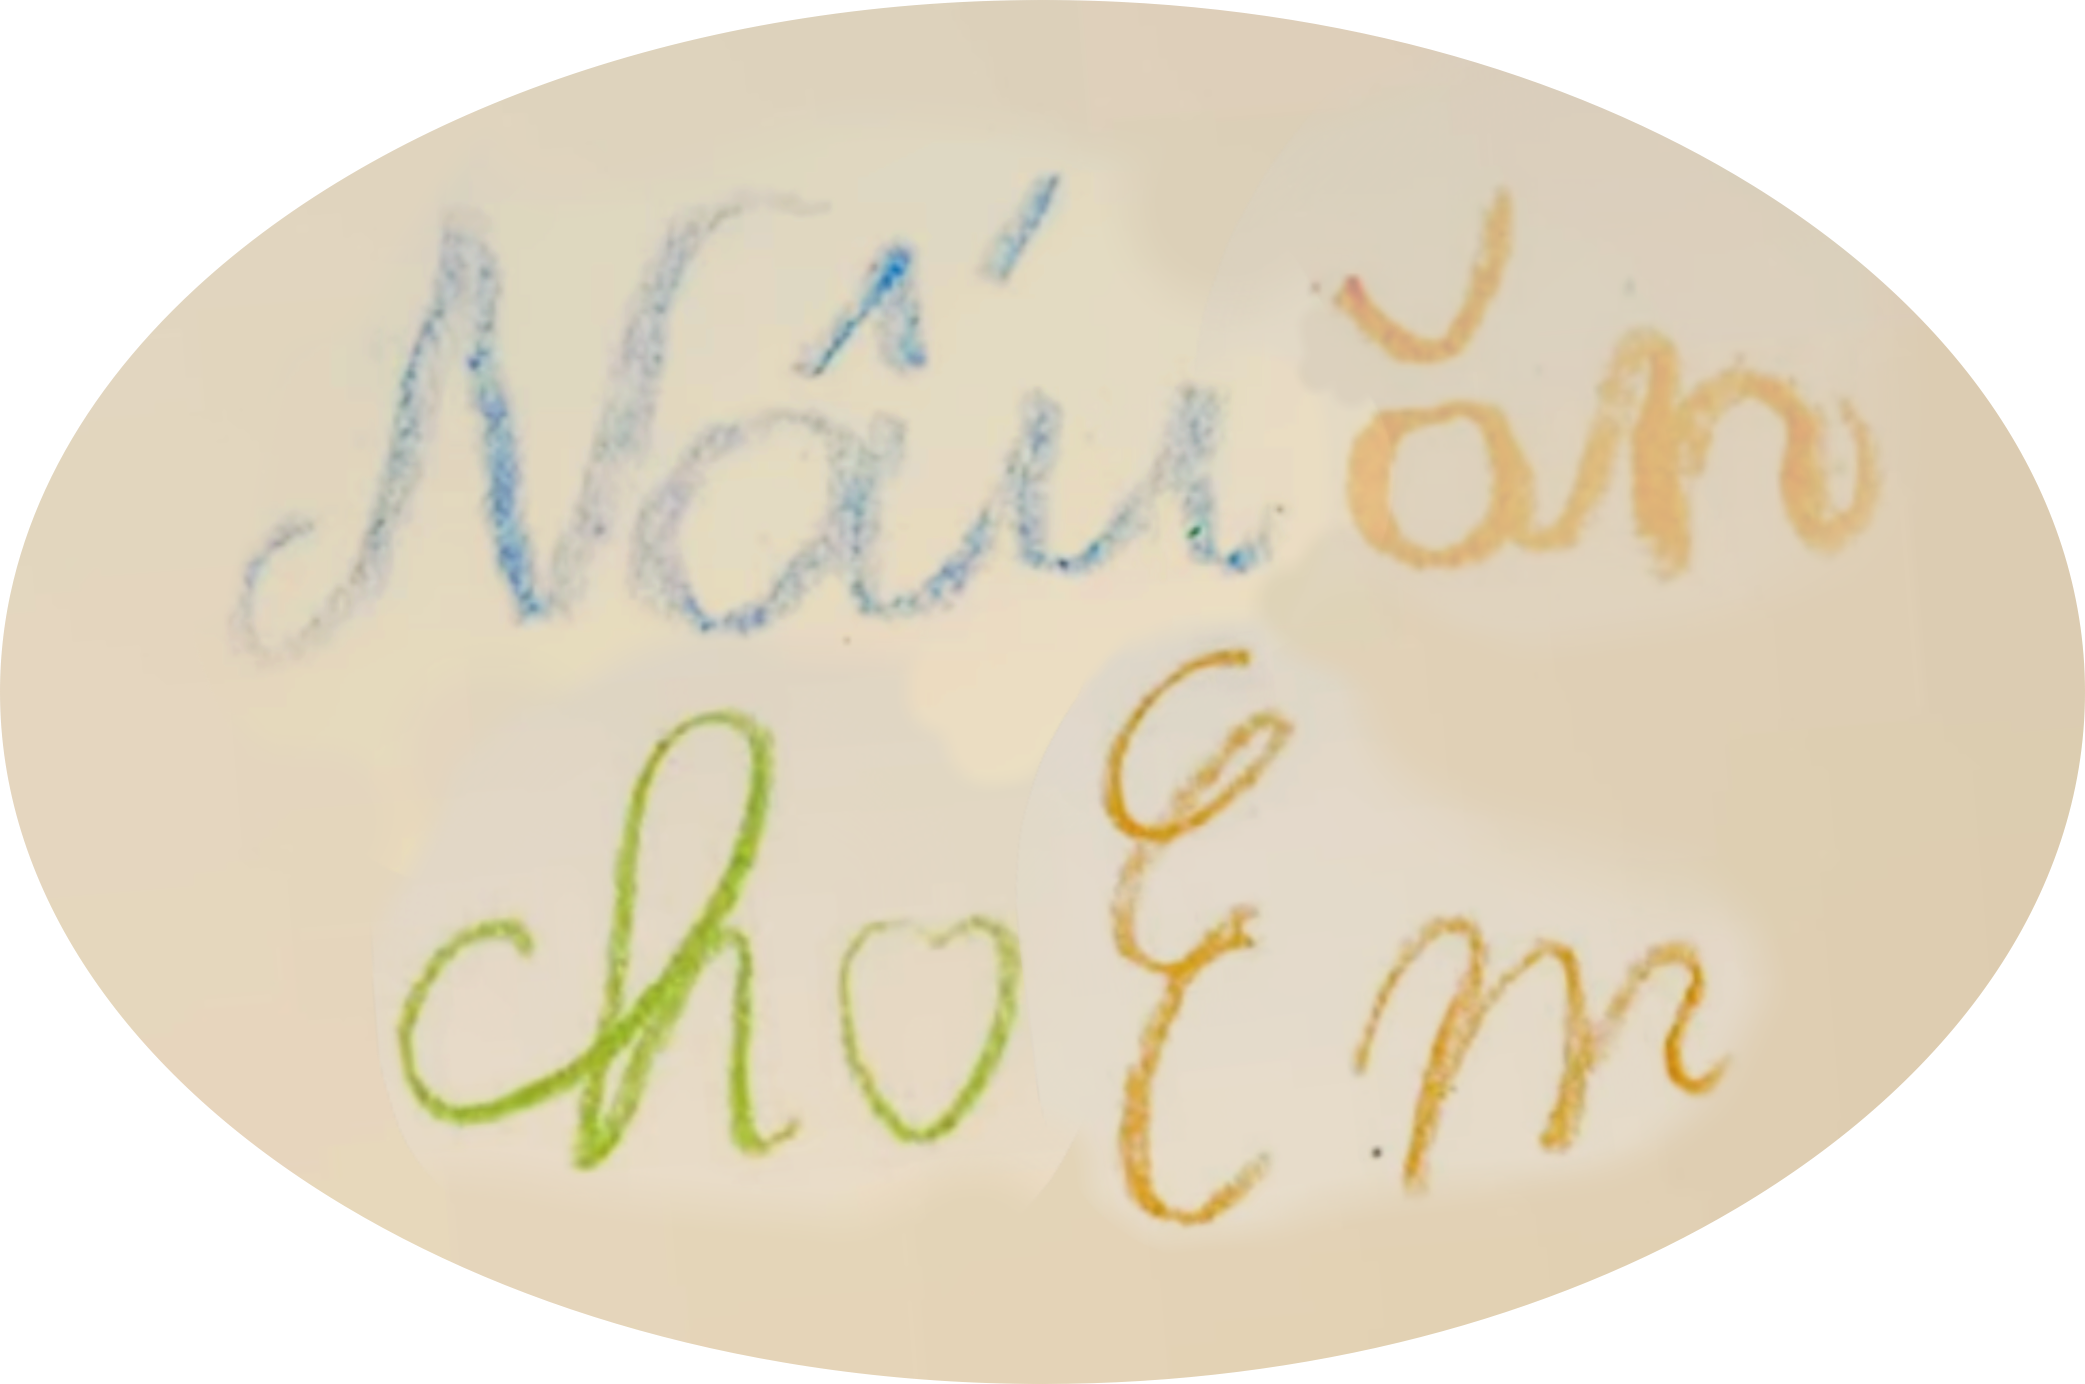 Nấu ăn
cho Em